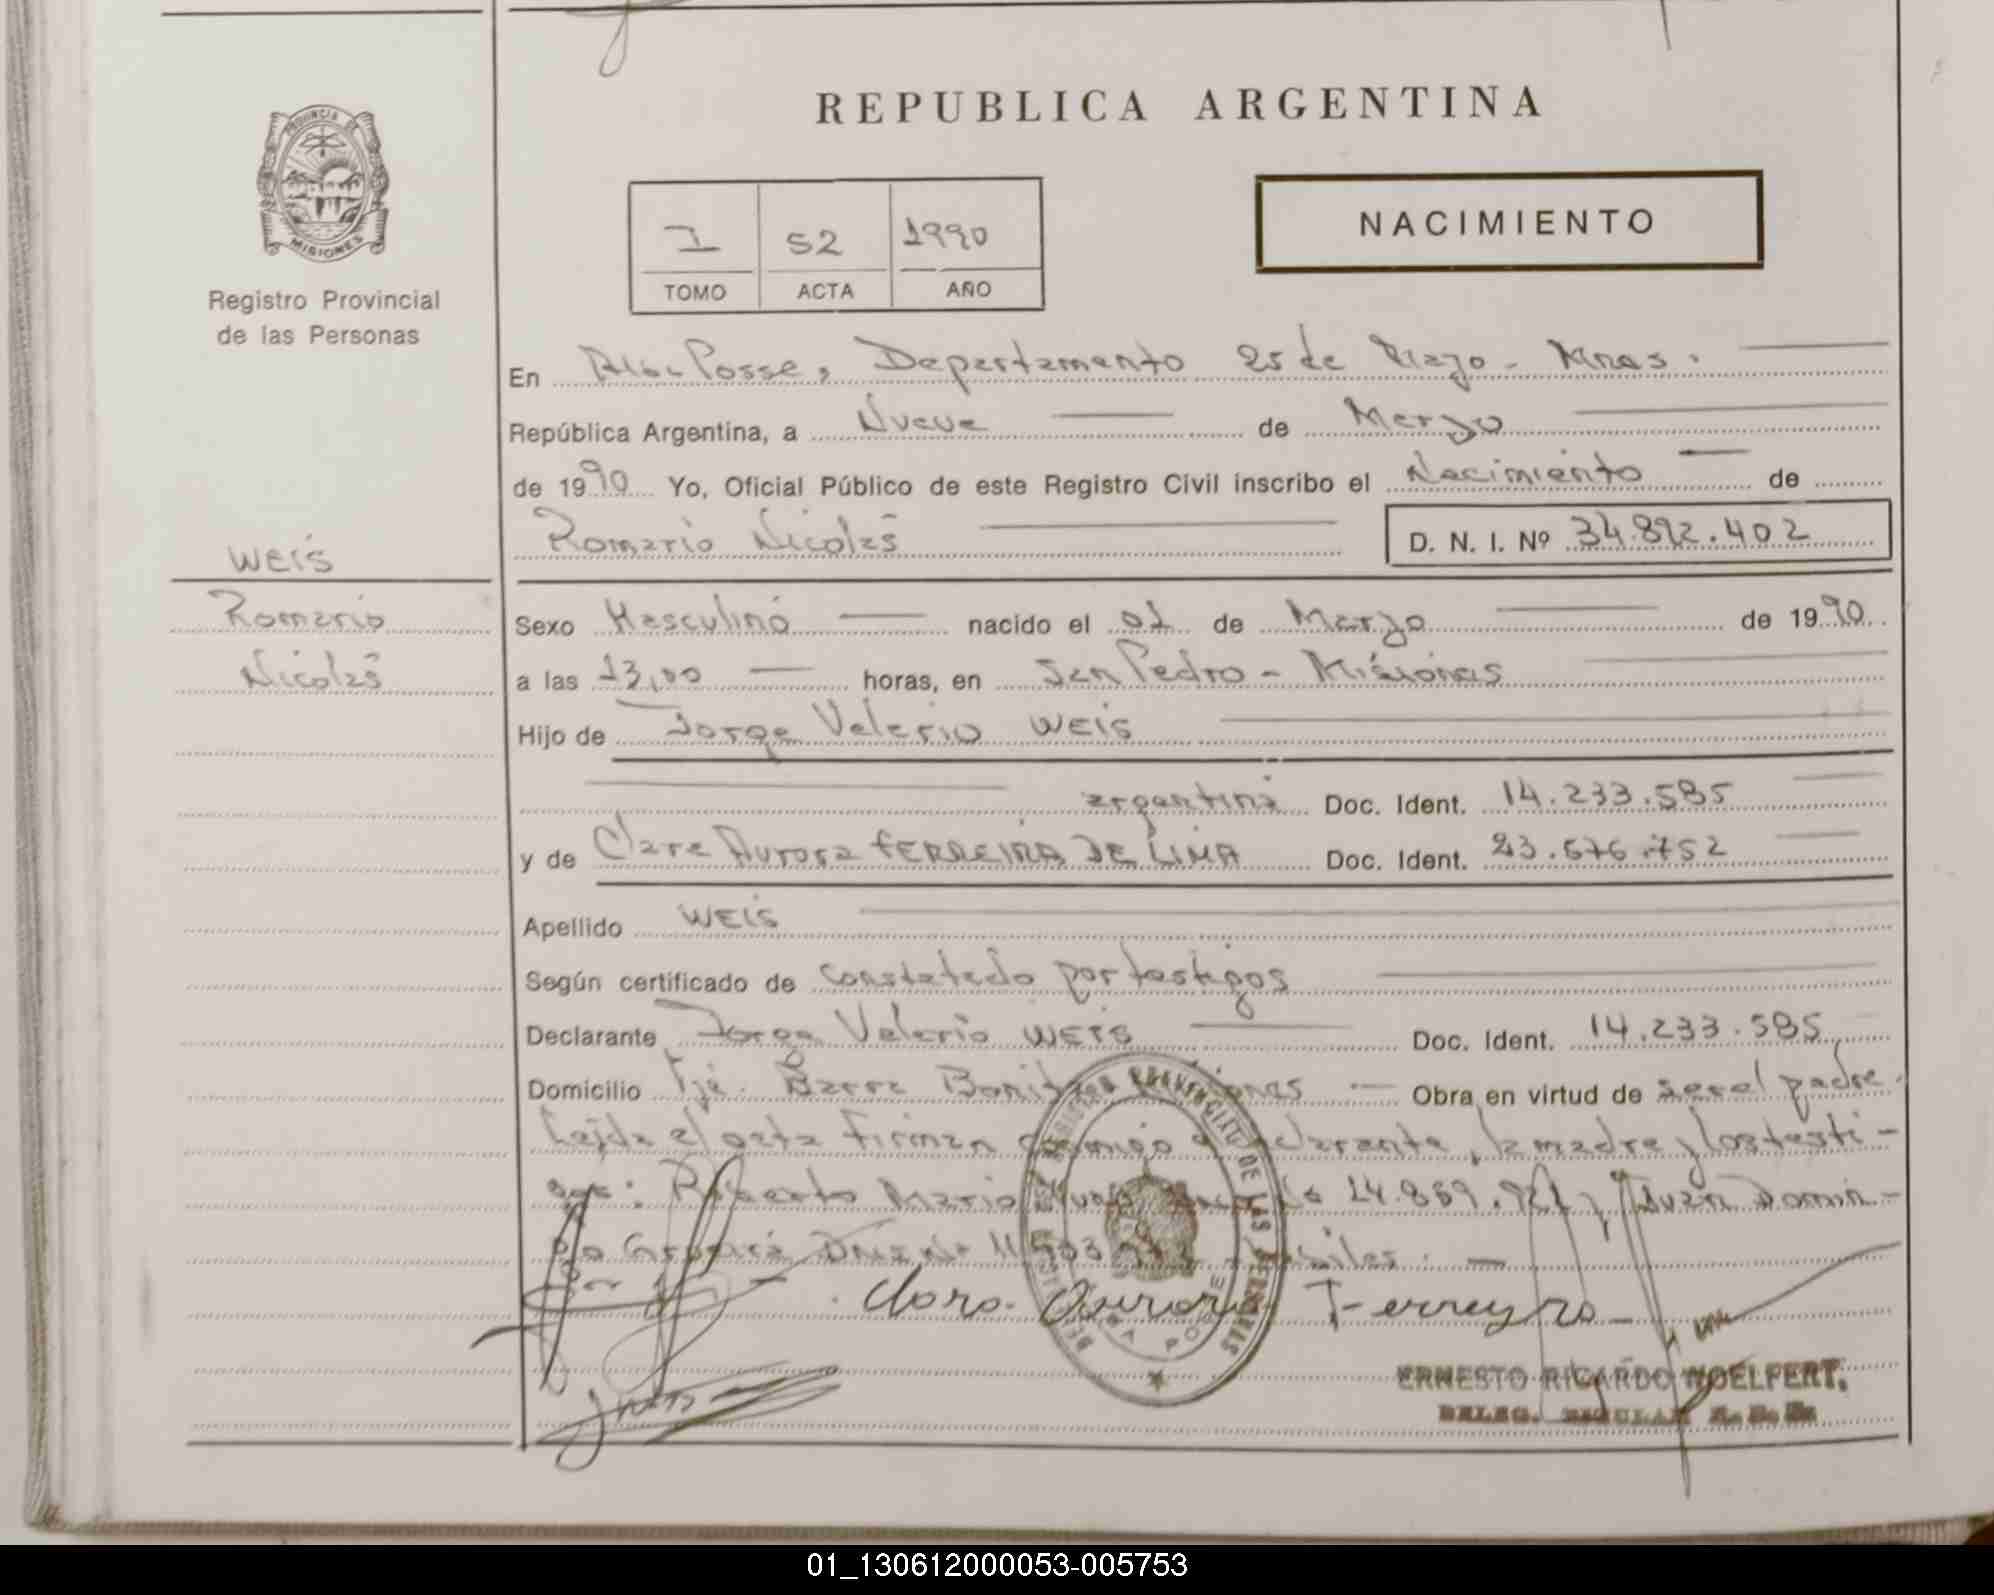 REPUBLICA ARGENTINA
PROVINCIA DE
MISIONES
Registro Provincial
de las Personas
I 52 1990
TOMO ACTA AÑO
NACIMIENTO
En Alba Posse, Departamento 25 de Mayo - Mnes.
República Argentina, a Nueve de Marzo
de 1990 Yo, Oficial Público de este Registro Civil inscribo el Nacimiento de
Romario Nicolás D. N. I. Nº 34.892.402
WEIS
Romario
Nicolás
Sexo Masculino nacido el 01 de Marzo de 1990
a las 13,00 horas, en San Pedro - Misiones
Hijo de Jorge Valerio WEIS
argentina Doc. Ident. 14.233.585
y de Clara Aurora FERREIRA DE LIMA Doc. Ident. 23.676.752
Apellido WEIS
Según certificado de Constatado por testigos
Declarante Jorge Valerio WEIS Doc. Ident. 14.233.585
Domicilio Pje. Barra Bonita Misiones Obra en virtud de ser el padre.
Leída el acta firman conmigo el declarante, la madre y los testi-
gos: Roberto Mario 14.869. , Juan Domin-
go
Clara Aurora Ferreyra
REGISTRO PROVINCIAL DE LAS PERSONAS
ALBA POSSE
ERNESTO RICARDO NOELFERT.
DELEG. TITULAR
01_130612000053-005753